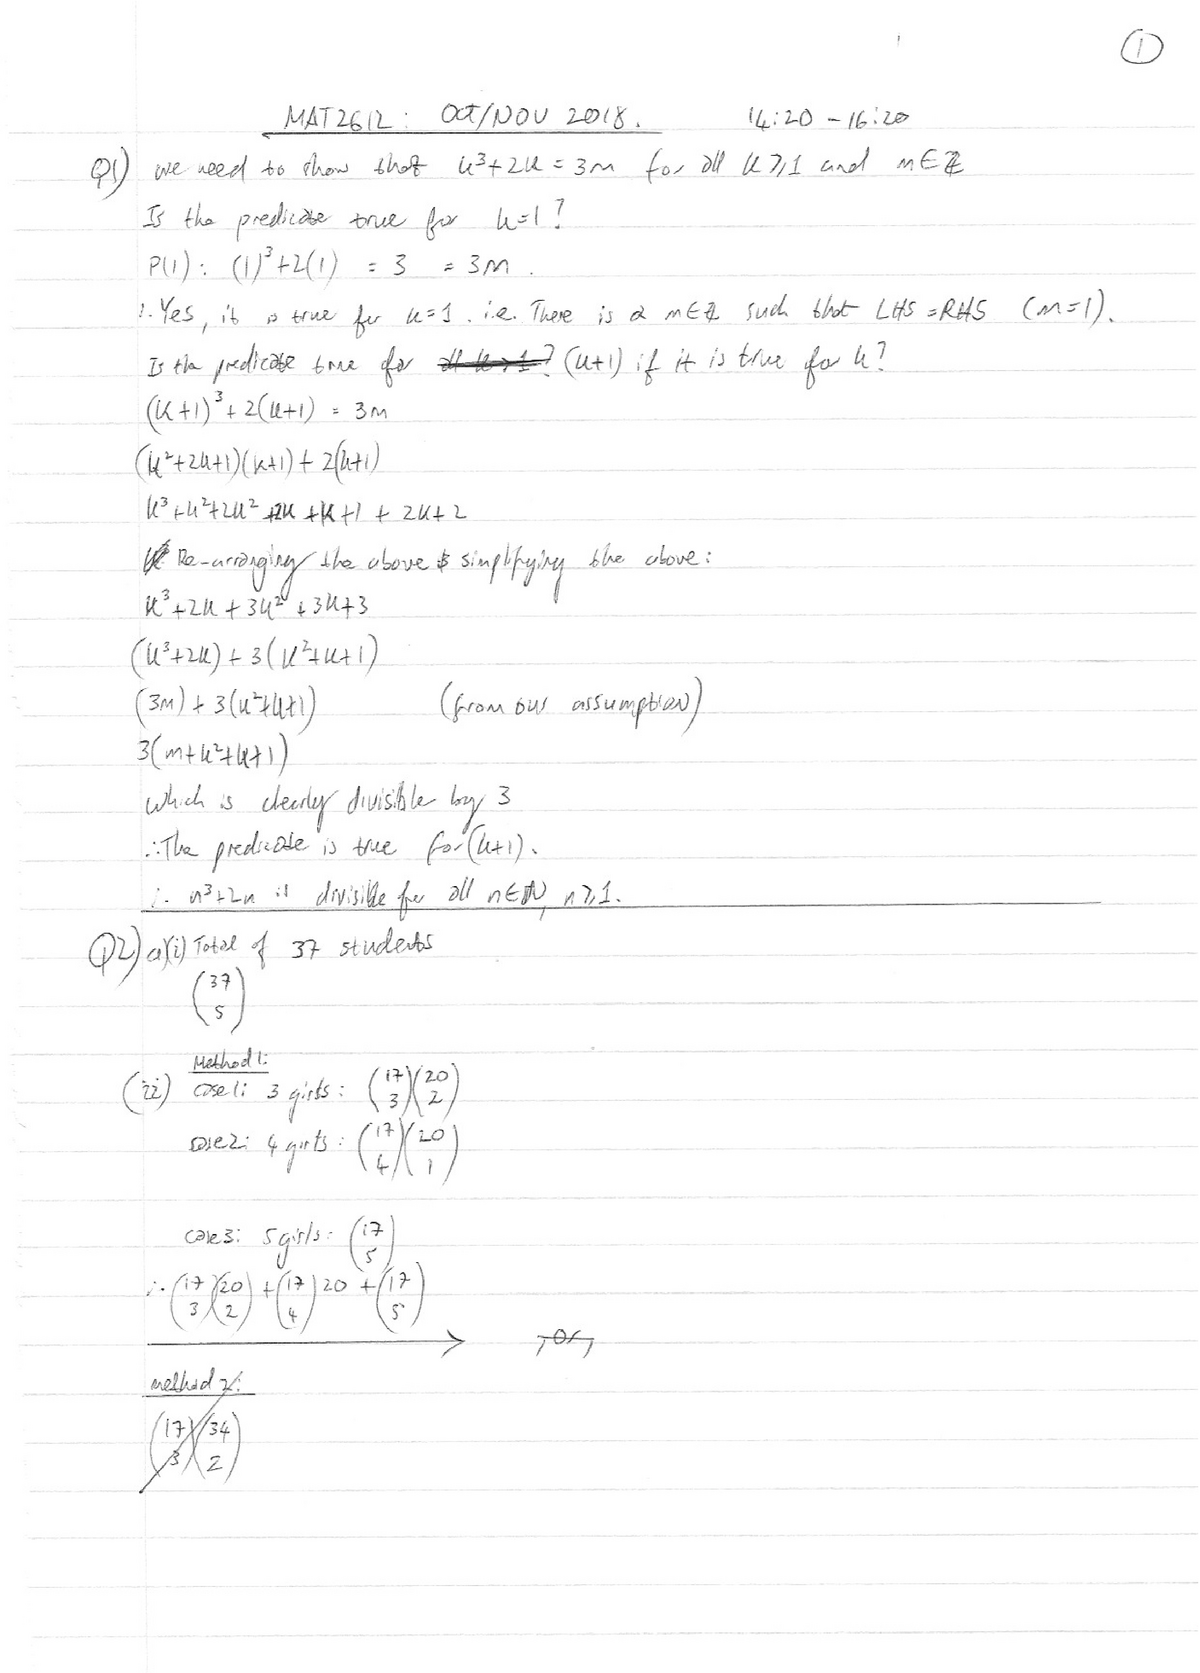 1
MAT2612: OCT/NOV 2018. 14:20 - 16:20
Q1) we need to show that k³+2k = 3m for all k≥1 and m∈ℤ
Is the predicate true for k=1?
P(1): (1)³+2(1) = 3 = 3m.
∴ Yes, it is true for k=1. i.e. There is a m∈ℤ such that LHS=RHS (m=1).
Is the predicate true for all k≥1? (k+1) if it is true for k?
(k+1)³+2(k+1) = 3m
(k²+2k+1)(k+1)+2(k+1)
k³+k²+2k²+2k+k+1+2k+2
Re-arranging the above & simplifying the above:
k³+2k+3k²+3k+3
(k³+2k)+3(k²+k+1)
(3m)+3(k²+k+1) (from our assumption)
3(m+k²+k+1)
which is clearly divisible by 3
∴ The predicate is true for (k+1).
∴ n³+2n is divisible for all n∈ℕ, n≥1.
Q2) a)(i) Total of 37 students
(37
5)
Method 1:
(ii) case 1: 3 girls: (17 3)(20 2)
case 2: 4 girls: (17 4)(20 1)
case 3: 5 girls: (17 5)
∴ (17 3)(20 2) + (17 4) 20 + (17 5)
, or,
method 2:
(17 3)(34 2)